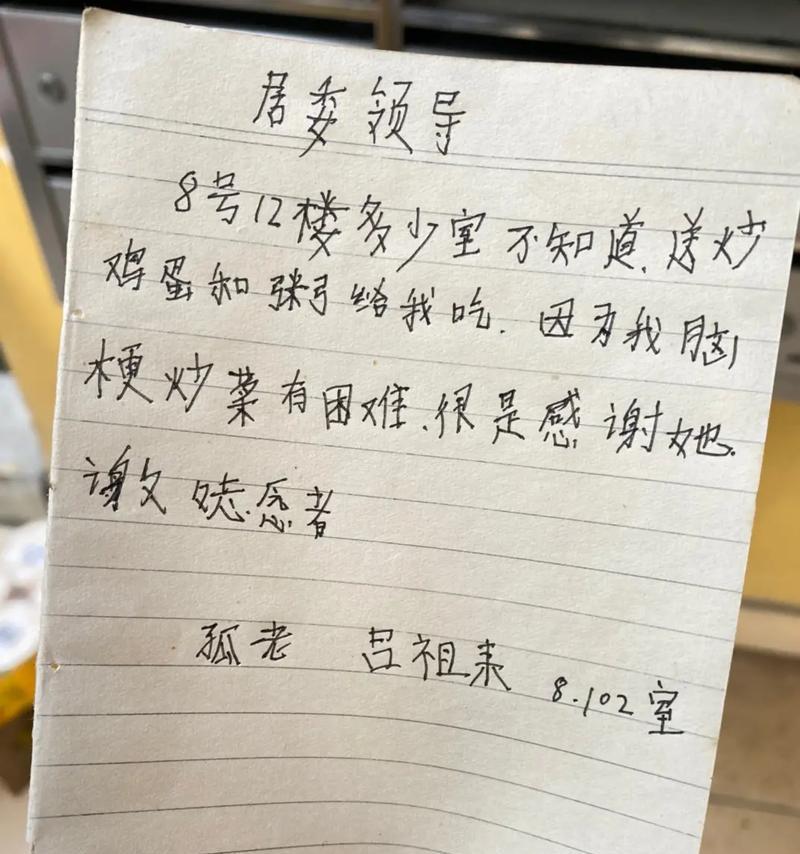 居委领导
8号12楼多少室不知道.送炒
鸡蛋和粥给我吃.因为我脑
梗炒菜有困难.很是感谢她.
谢文 志愿者
孤老 吕祖来 8.102室